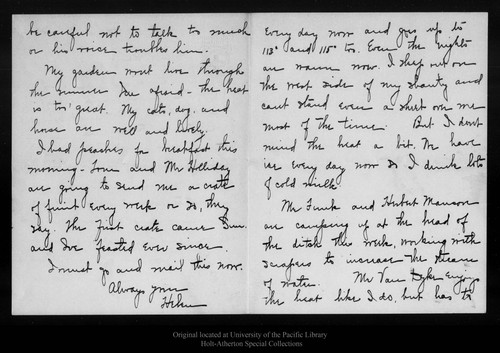 be careful not to talk so much
or his voice troubles him.
My garden wont live through
the summer I'm afraid - the heat
is too great. My cats, dog, and
horse are well and lively.
I had peaches for breakfast this
morning - Tom and Mr Holliday
are going to send me a crate
of fruit every week or so, they
say. The first crate came Sun.
and I've feasted ever since.
I must go and mail this now.
Always your
Helen
every day now and goes up to
113° and 115° too. Even the nights
are warm now. I sleep out on
the west side of my shanty and
cant stand even a sheet over me
most of the time. But I don't
mind the heat a bit. We have
ice every day now so I drink lots
of cold milk.
Mr Funk and Herbert Manson
are camping up at the head of
the ditch this week, working with
scrapers to increase the stream
of water. Mr Van Dyke enjoys
the heat like I do, but has to
Original located at University of the Pacific Library
Holt-Atherton Special Collections